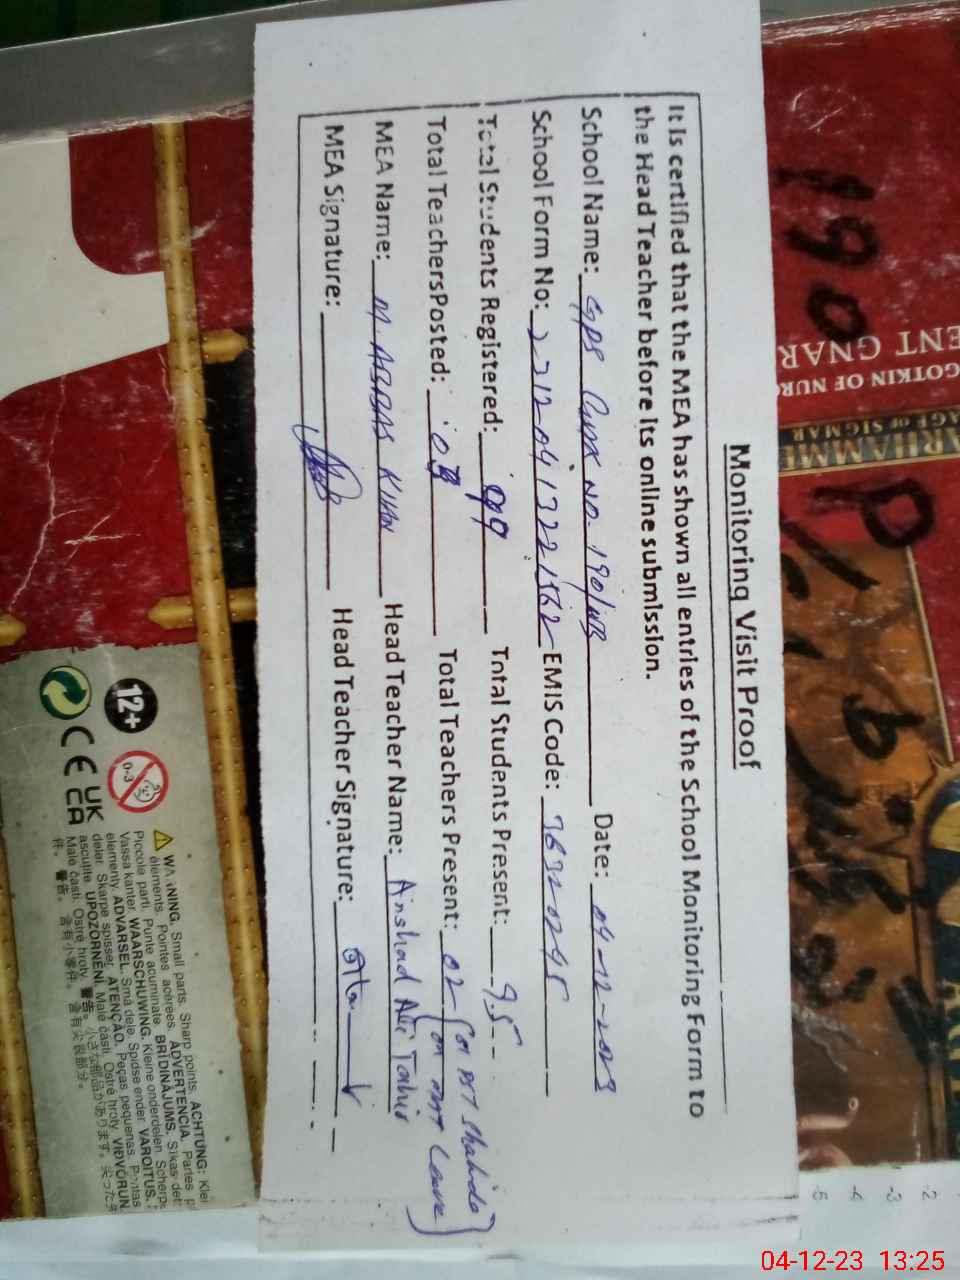 Monitoring Visit Proof
It is certified that the MEA has shown all entries of the School Monitoring Form to
the Head Teacher before its online submission.
School Name: GPS Chak No. 190/WB Date: 04-12-2023
School Form No: EMIS Code: 36320245
Total Students Registered: 99 Total Students Present: 95
Total TeachersPosted: 03 Total Teachers Present: 02
MEA Name: M. ABBAS KHAN Head Teacher Name: Arshad Ali Tahir
MEA Signature: Head Teacher Signature:
190
ENT GNAR
GOTKIN OF NURG
AGE OF SIGMAR
12+
0-3
CE UK CA
WARNING. Small parts. Sharp points. ACHTUNG: Klei
éléments. Pointes acérées. ADVERTENCIA. Partes p
Piccole parti. Punte acuminate. BRĪDINĀJUMS. Sīkas det
Vassa kanter. WAARSCHUWING. Kleine onderdelen. Scherpe
elementy. ADVARSEL. Små dele. Spidse ender. VAROITUS.
delar. Skarpe spisser. ATENÇÃO. Peças pequenas. Pontas
ascuțite. UPOZORNĚNÍ. Malé části. Ostré hroty.
Malé časti. Ostré hroty. 警告。
件。警告。
-5
-4
-3
-2
04-12-23 13:25